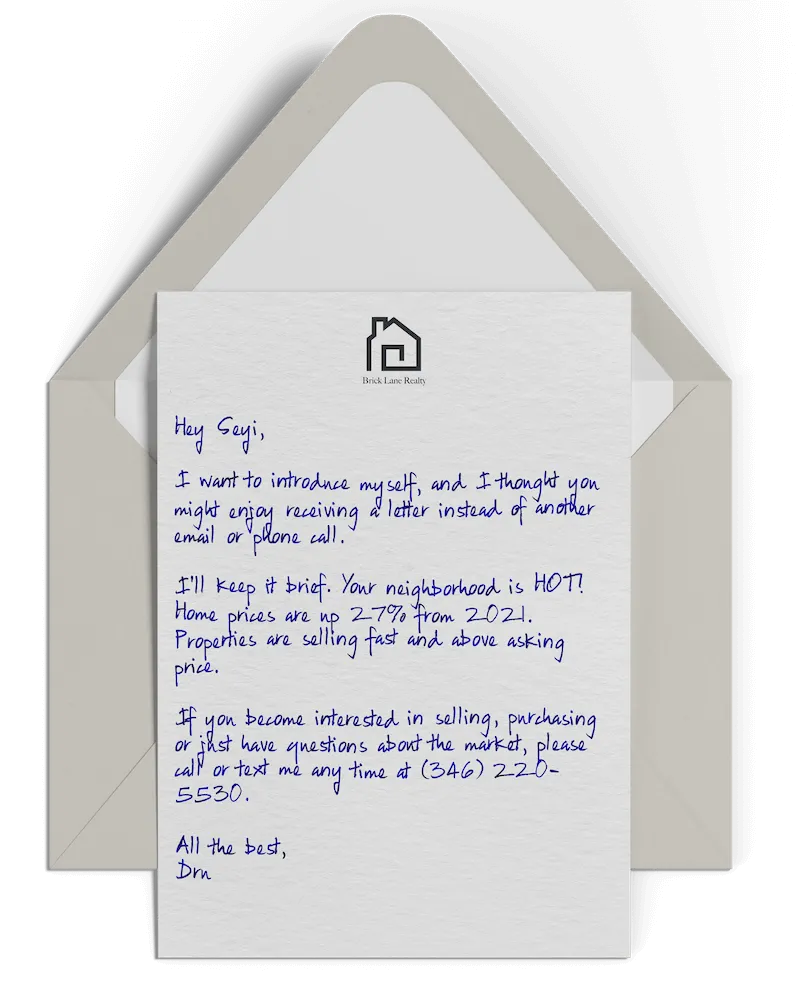 Brick Lane Realty
Hey Seyi,
I want to introduce myself, and I thought you
might enjoy receiving a letter instead of another
email or phone call.
I'll keep it brief. Your neighborhood is HOT!
Home prices are up 27% from 2021.
Properties are selling fast and above asking
price.
If you become interested in selling, purchasing
or just have questions about the market, please
call or text me any time at (346) 220-
5530.
All the best,
Dru